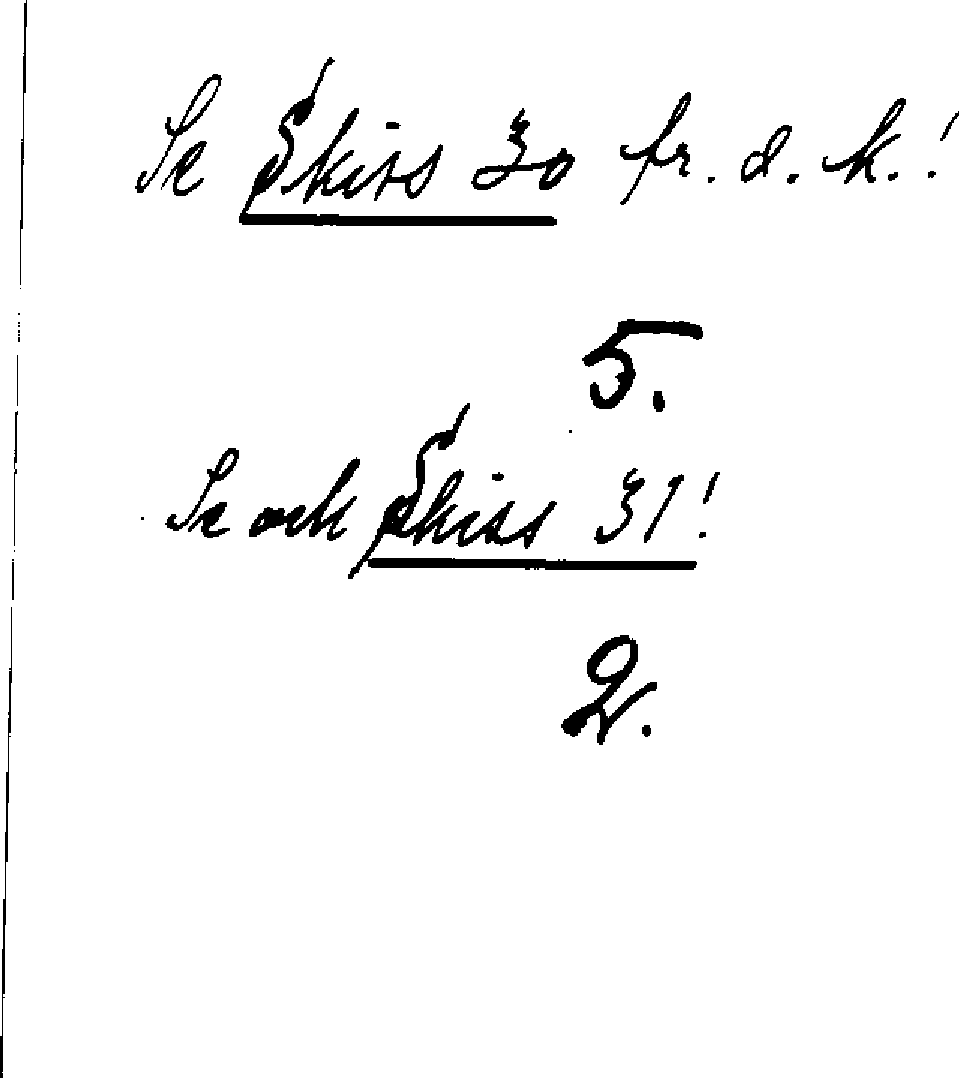 Se Skiss 30 fr. d. k.!
5.
Se och Skiss 31!
2.